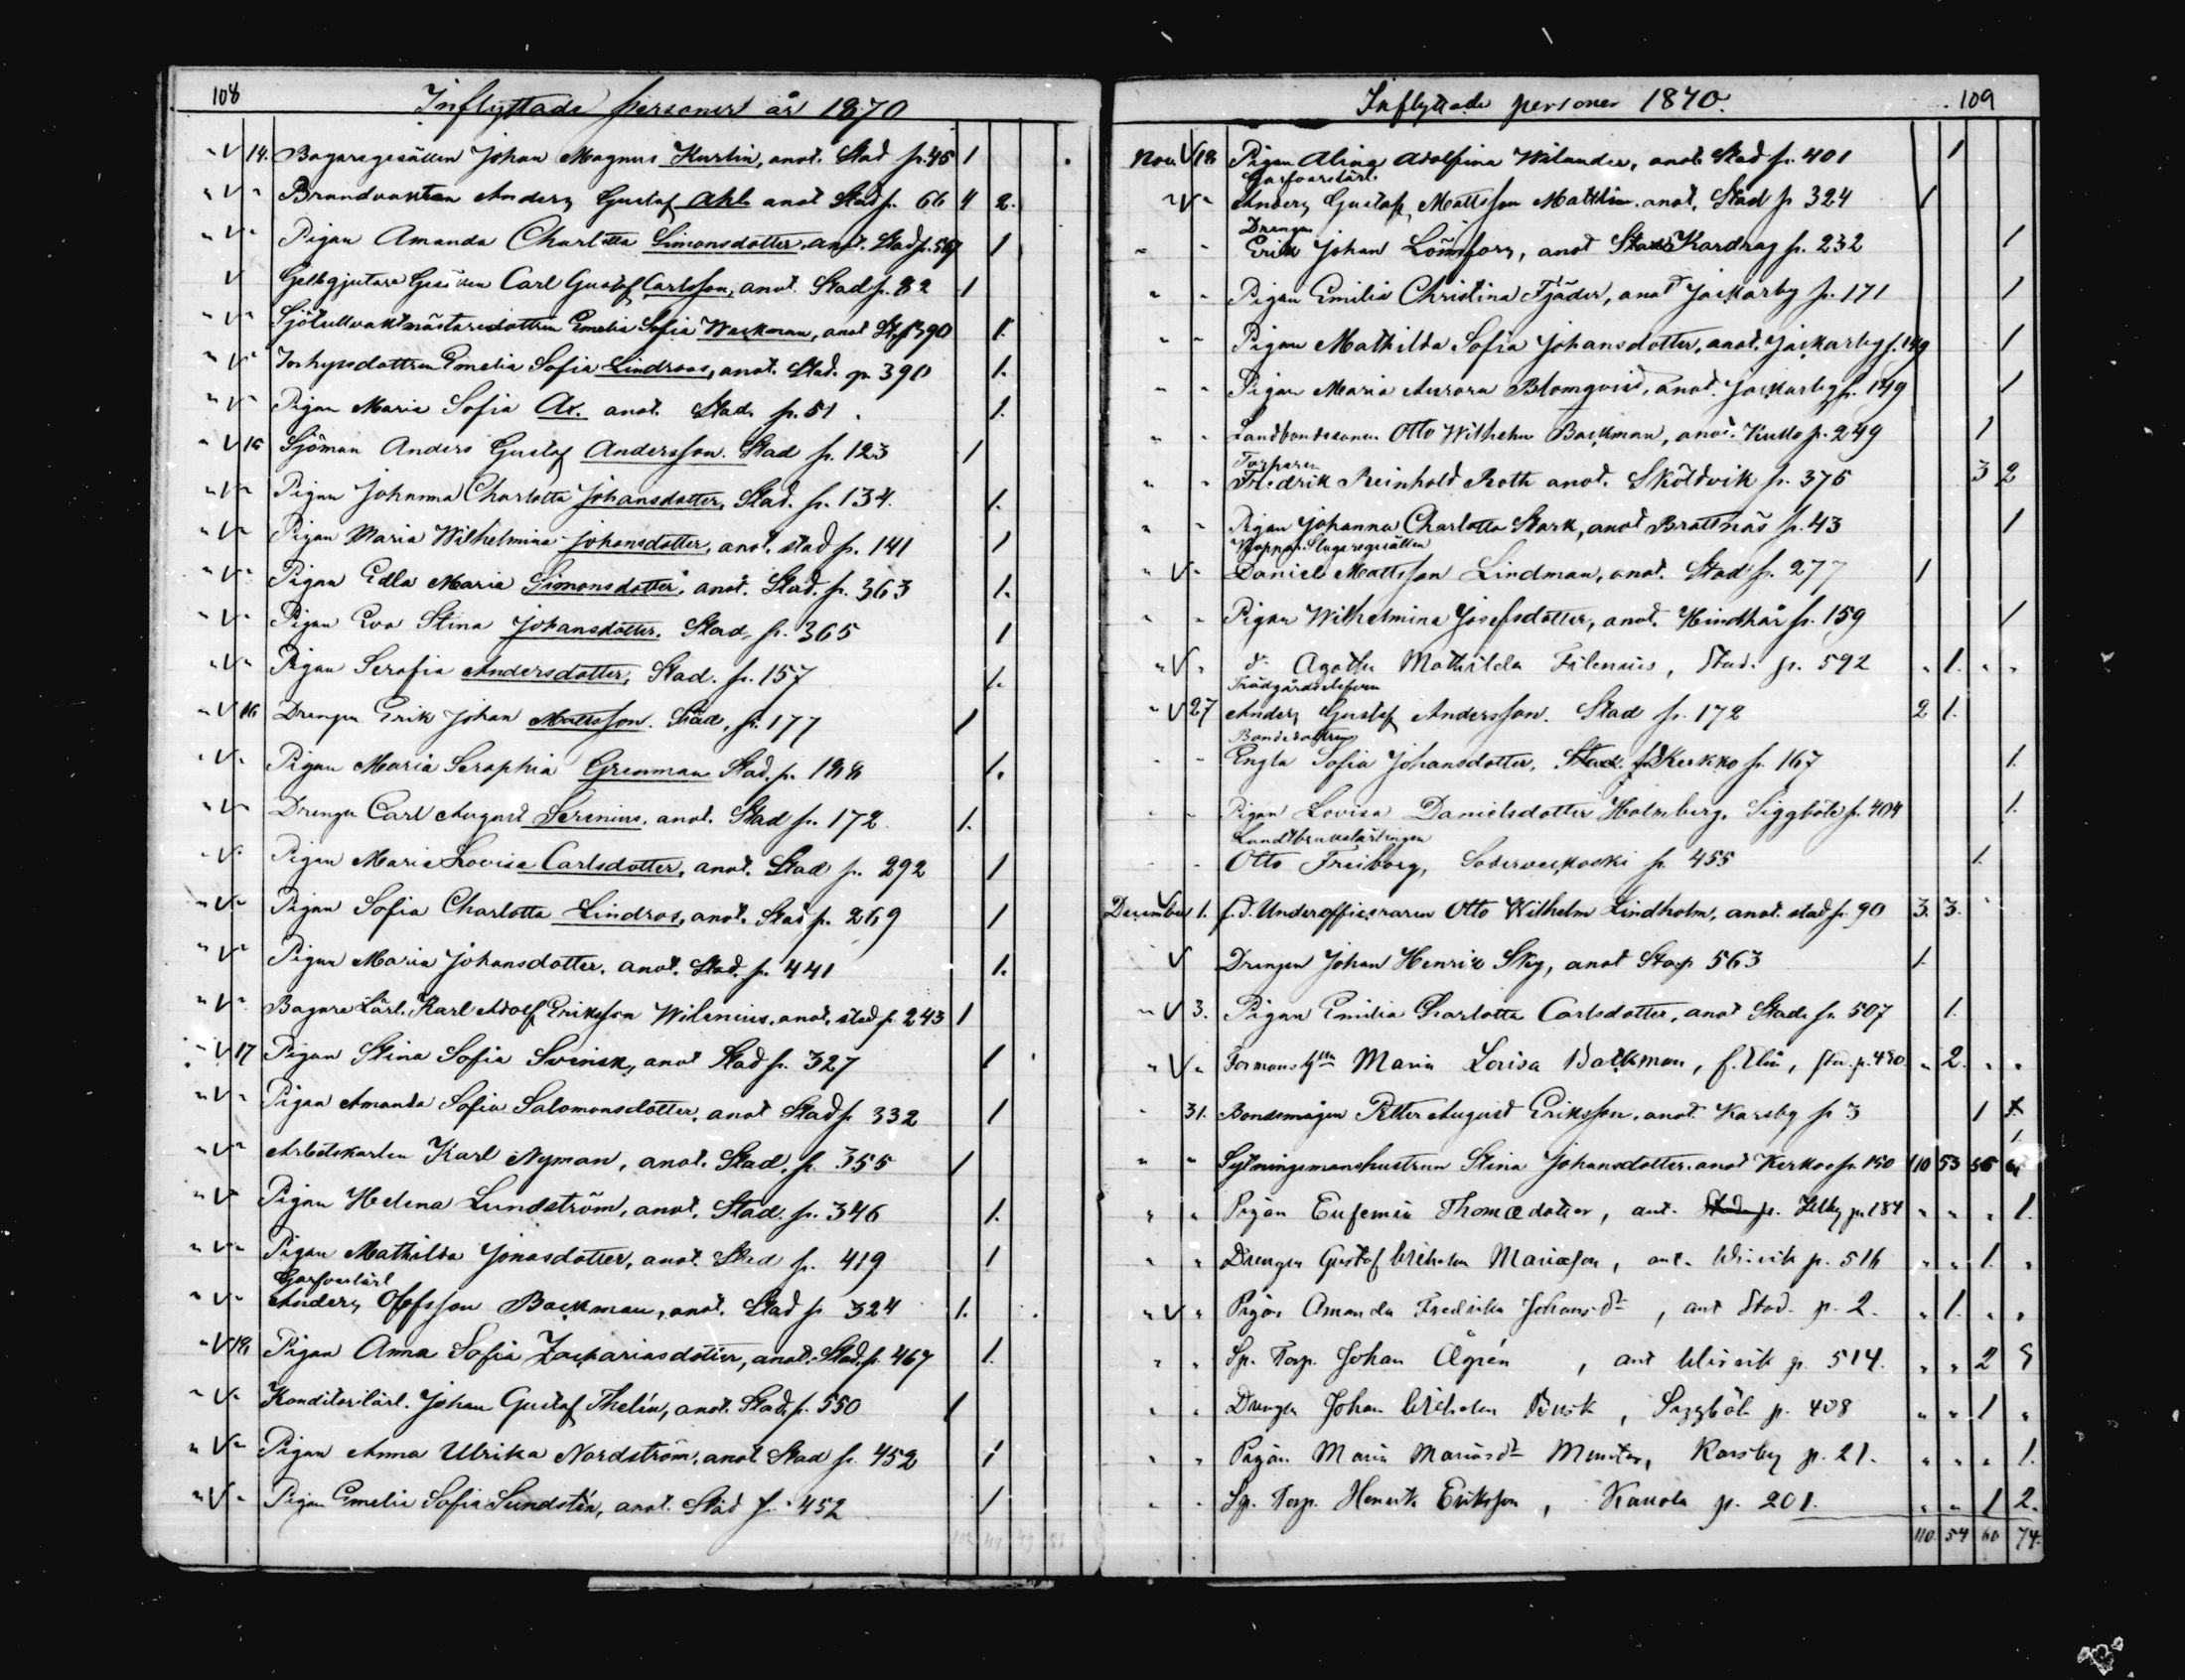 108
Inflyttade personer år 1870
" V 14. Bagaregesällen Johan Magnus Kurlin, anot. Stad p. 45 1
" V " Brandvakten Anders Gustaf Ahl. anot Stad p. 66 4 2.
" V " Pigan Amanda Charlotta Simonsdotter, anot. Stad p. 567 1
V Gelbgjutare Gesällen Carl Gustaf Carlsson, anot. Stad p. 82 1
" V " Sjötullvaktmästaredottren Emelia Sofia Wackman, anot St. p 390 1.
" V " Inhysdottren Emelia Sofia Lindroos, anot. Stad. p. 390 1.
" V " Pigan Maria Sofia Ax. anot. Stad. p. 51. 1.
" V 15 Sjöman Anders Gustaf Andersson. Stad p. 123 1
" V " Pigan Johanna Charlotta Johansdotter, Stad. p. 134. 1.
" V " Pigan Maria Wilhelmina Johansdotter, anot. stad p. 141 1
" V " Pigan Edla Maria Simonsdotter, anot. Stad. p. 363 1.
" V " Pigan Eva Stina Johansdotter. Stad, p. 365 1
" V " Pigan Serafia Andersdotter, Stad. p. 157 1.
" V 16 Drengen Erik Johan Mattsson. Stad, p. 177 1
" V " Pigan Maria Seraphia Grenman Stad. p. 188 1.
" V " Drengen Carl August Serenius, anot. Stad p. 172. 1.
" V " Pigan Maria Lovisa Carlsdotter, anot. Stad p. 292 1
" V " Pigan Sofia Charlotta Lindros, anot. Stad p. 269 1
" V " Pigan Maria Johansdotter, anot. Stad. p. 441 1.
" V " Bagare Lärl. Karl Adolf Eriksson Wilenius, anot. stad p. 243 1
" V 17 Pigan Stina Sofia Svinsk, anot Stad p. 327 1
" V " Pigan Amanda Sofia Salomonsdotter, anot Stad p 332 1
" V " Arbetskarlen Karl Nyman, anot. Stad, p. 355 1
" V " Pigan Helena Lundström, anot. Stad. p. 346 1.
" V " Pigan Mathilda Jonasdotter, anot. Stad p. 419 1
Garfvarelärl
" V " Anders Olofsson Backman, anot. Stad p 324 1.
" V 18 Pigan Anna Sofia Zachariasdotter, anot. Stad. p. 467 1.
" V " Konditorilärl. Johan Gustaf Thelén, anot. Stad, p. 550 1
" V " Pigan Anna Ulrika Nordström, anot Stad p. 452 1
" V " Pigan Emelie Sofia Sundstén, anot. Stad p. 452 1
Inflyttade personer 1870. 109
Nov. V 18 Pigan Alina Adolfina Wilander, anot. Stad p. 401 1
Garfvarelärl.
" V " Anders Gustaf Mattsson Matthlin. anot. Stad p 324 1
Drengen
" " Erik Johan Lönnfors, anot Kardrag p. 232 1
" " Pigan Emilia Christina Fjäder, anot Jackarby p. 171 1
" " Pigan Mathilda Sofia Johansdotter, anot. Jackarby p. 149 1
" " Pigan Maria Aurora Blomqvist, anot. Jackarby p. 149 1
" " Landbondesonen Otto Wilhelm Backman, anot. Kullo p. 249 1
Torparen
" " Fredrik Reinhold Roth anot. Sköldvik p. 375 3 2
" " Pigan Johanna Charlotta Stark, anot Brattnäs p. 43 1
Kopparslagaregesällen
" V " Daniel Mattsson Lindman, anot. Stad p. 277 1
" " Pigan Wilhelmina Josefsdotter, anot. Hindhår p. 159 1
" V " d:o Agatha Mathilda Filenius, Stad. p. 592 " 1. " "
Trädgårdseleven
" V 27 Anders Gustaf Andersson. Stad p. 172 2 1.
Bondedottren
" " Engla Sofia Johansdotter. Stad. Kerkko p. 167 1.
" " Pigan Lovisa Danielsdotter Holmberg. Siggböle p. 404 1.
Landtbrukslärlingen
" " Otto Freiborg, Söderveckoski p. 455 1.
December 1. f.d. Underofficeraren Otto Wilhelm Lindholm, anot. stad p. 90 3. 3.
V Drengen Johan Henrik Sky, anot Stad p 563 1.
" V 3. Pigan Emilia Charlotta Carlsdotter, anot Stad. p. 507 1.
" V " Formans Maria Lovisa Backman, p. 480. " 2. " "
" 31. Bondemågen Petter August Eriksson, anot. Karsby p 3 1
" " Sytningsmanshustrun Stina Johansdotter, anot Kerkoo p. 150 110 53 56
" " Pigan Eufemia Thomædotter, ant. Stad p. Ilby p. 184 " " " 1.
" " Drengen Gustaf Wilhelm Mariæson, ant. p. 516 " " 1. "
" V " Pigan Amanda Fredrika Johans dr, ant Stad. p. 2. " 1. " "
" " Sp. Torp. Johan Ågrén, ant p. 514. " " 2
" " Drengen Johan Wilhelm, Siggböle p. 408 " " 1 "
" " Pigan Maria Mariasdr Munter, Karsby p. 21. " " " 1.
" " Sp. Torp. Henrik Eriksson, p. 201. " " 1 2.
110. 54 60 74.